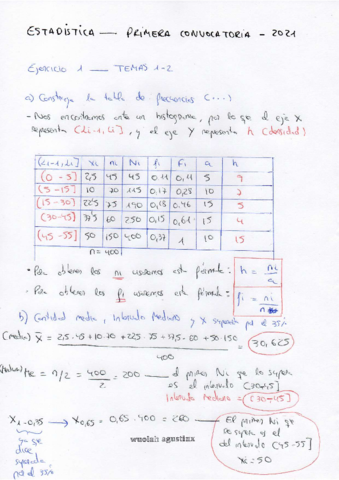 ESTADÍSTICA — PRIMERA CONVOCATORIA - 2021
Ejercicio 1 — TEMAS 1-2
a) Construya la tabla de frecuencias (...)
- Nos encontramos ante un histograma, por lo que el eje X
representa (Li-1, Li], y el eje Y representa h (densidad)
(Li-1, Li] xi ni Ni fi Fi a h
(0-5] 2,5 45 45 0.11 0,11 5 9
(5-15] 10 70 115 0,17 0,28 10 7
(15-30] 22,5 75 190 0,18 0.46 15 5
(30-45] 37,5 60 250 0,15 0,61 15 4
(45-55] 50 150 400 0,37 1 10 15
n=400
• Para obtener los ni usaremos esta fórmula: h = ni/a
- Para obtener los fi usaremos esta fórmula: fi = ni/n
b) Cantidad media, intervalo mediano y X superada por el 35%
(media) x̄ = 2,5·45+10·70+225·75+37,5·60+50·150 / 400 = 30,625
Me = n/2 = 400/2 = 200 — el primer Ni que lo supera
es el intervalo (30-45]
Intervalo mediano = (30-45]
X1-0,35 → X0,65 = 0,65·400 = 260 — El primer Ni que
lo supera es el
del intervalo (45-55]
xi = 50
ya que
dice
superada
por el 35%
wuolah agustinx